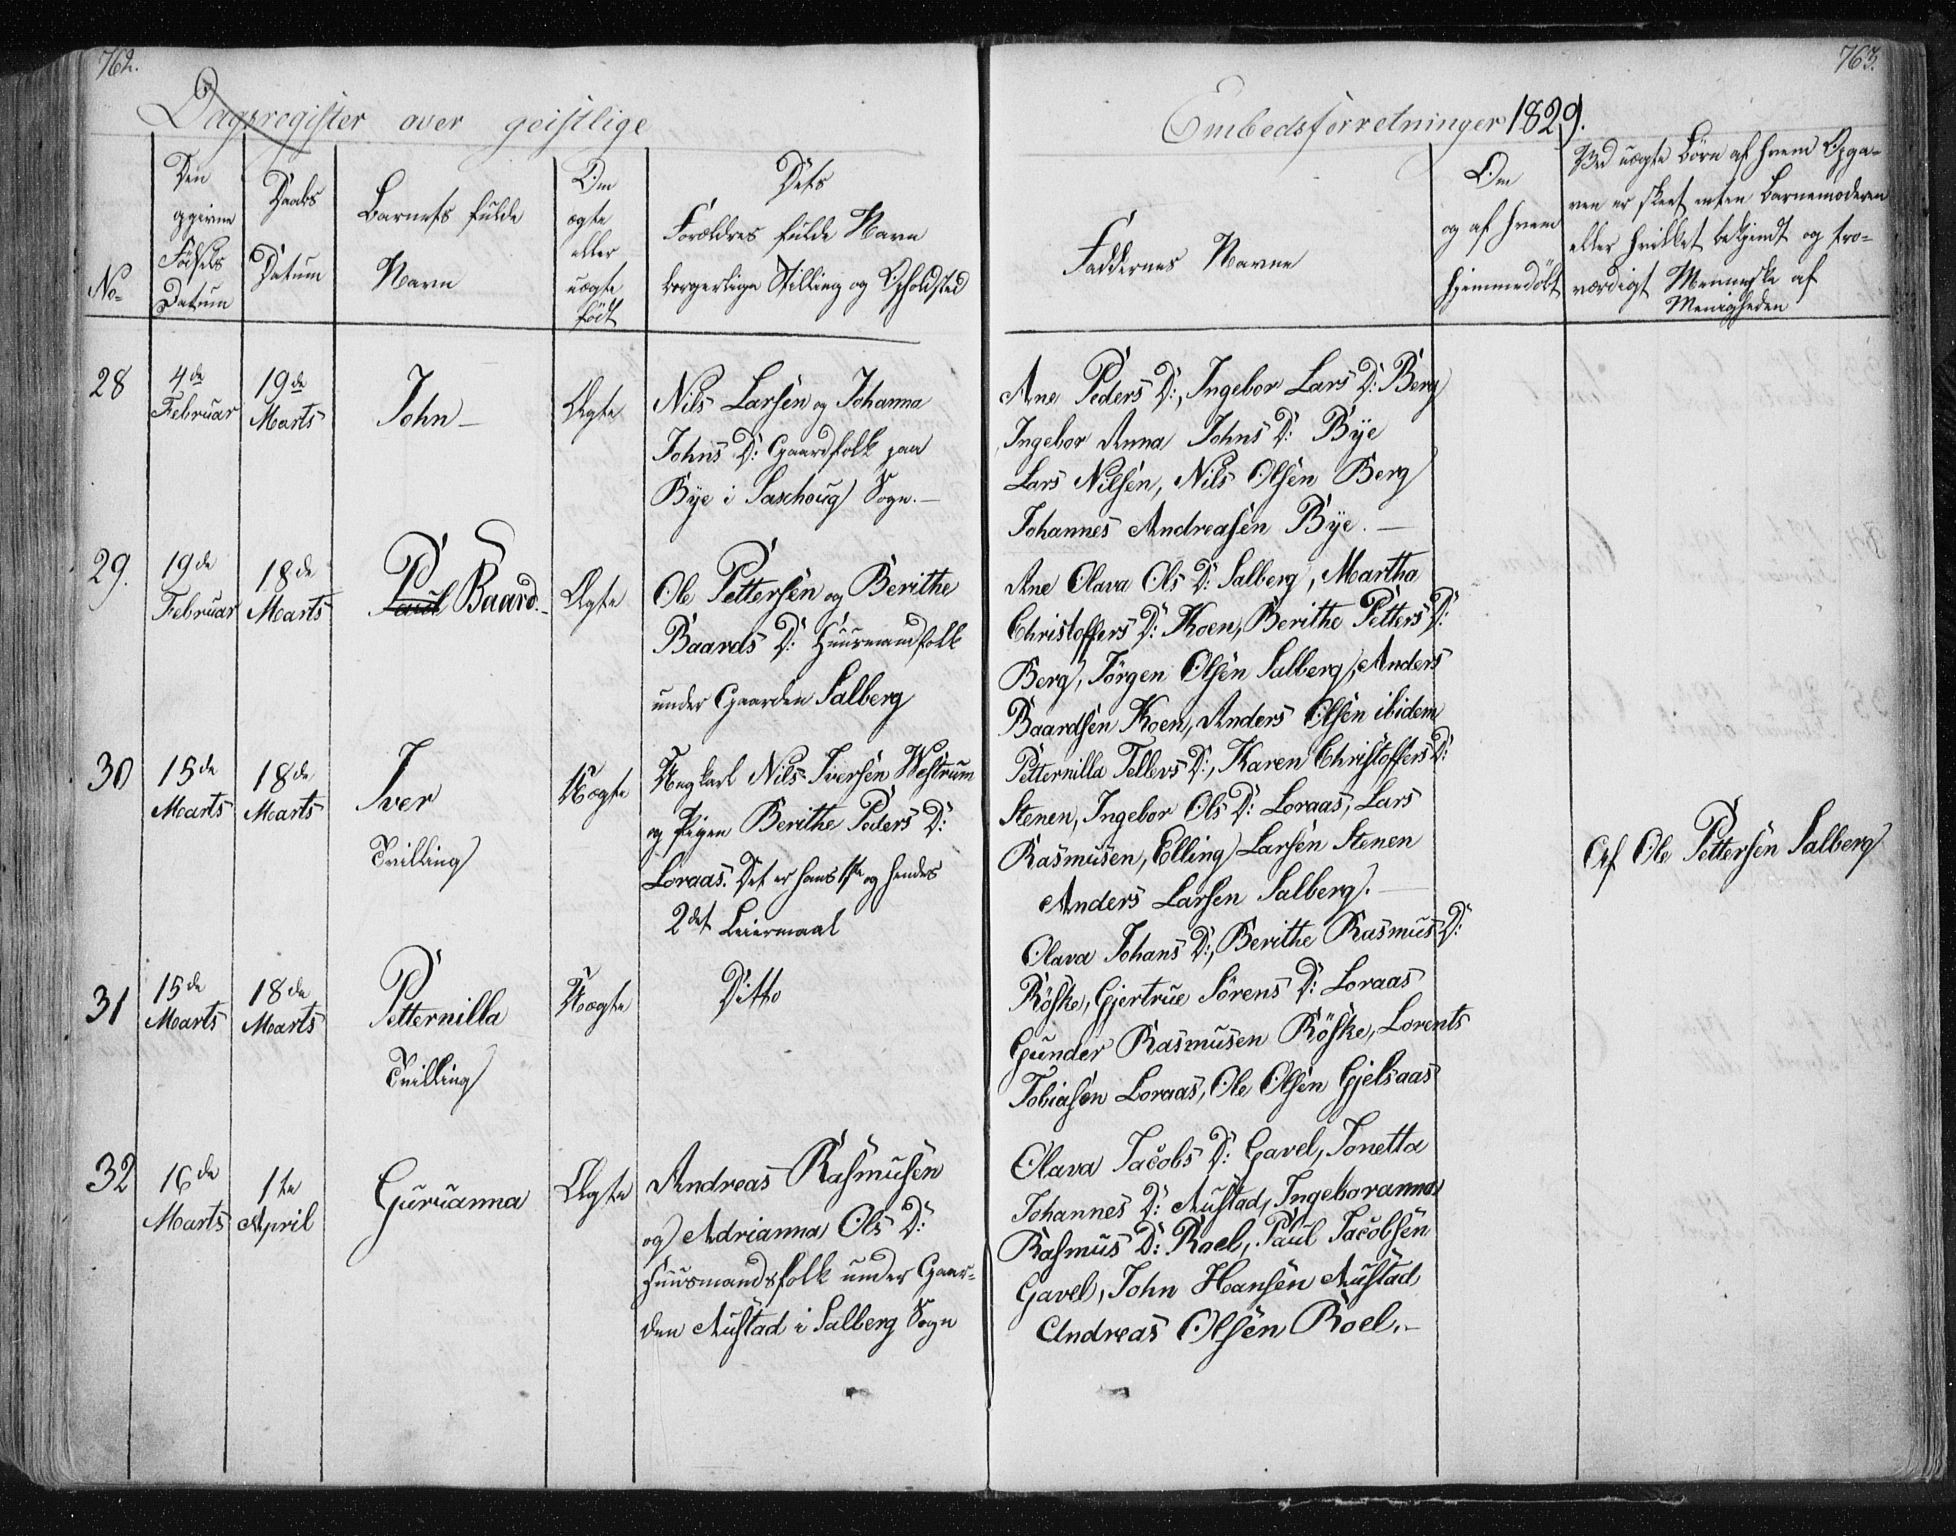 762.
763.
Dagsregister over geistlige
Embedsforretninger 1829.
No
Den
opgivne
Födsels
Datum
Daabs
Datum
Barnets fulde
Navn
Om
ægte
eller
uægte
födt
Dets
Forældres fulde Navn
borgerlige Stilling og Opholdsted
Faddernes Navne
Om
og af hvem
hjemmedöbt
Ved uægte Börn af hvem Opga-
ven er skeet enten Barnemoderen
eller hvilket bekjendt og tro-
værdigt Menneske af
Menigheden
28
4de
Februar
19de
Marts
John
Ægte
Nils Larsen og Johanna
Johns D: Gaardfolk paa
Bye i Saxhoug Sogn.
Ane Peders D:, Ingebor Lars D: Berg
Ingebor Anna Johns D: Bye
Lars Nilsen, Nils Olsen Berg
Johannes Andreasen Bye.
29.
19de
Februar
18de
Marts
Paul Baard.
Ægte
Ole Pettersen og Berithe
Baards D: Huusmandfolk
under Gaarden Salberg
Ane Olava Ols D: Salberg, Martha
Christoffers D: Koen, Berithe Petters D:
Berg, Jörgen Olsen Salberg, Anders
Baardsen Koen, Anders Olsen ibidem
30
15de
Marts
18de
Marts
Iver
Tvilling
Uægte
Ungkarl Nils Iversen Westrum
og Pigen Berithe Peders D:
Loraas. Det er hans 1ste og hendes
2det Leiermaal
Petternilla Tellevs D:, Karen Christoffers D:
Stenen, Ingebor Ols D: Loraas, Lars
Rasmusen, Elling Larsen Stenen
Anders Larsen Salberg.
Af Ole Pettersen Salberg
31
15de
Marts
18de
Marts
Petternilla
Tvilling
Uægte
Ditto
Olava Johans D:, Berithe Rasmus D:
Röske, Gjertrue Sörens D: Loraas
Gunder Rasmusen Röske, Lorents
Tobiasen Loraas, Ole Olsen Gjelsaas
32
16de
Marts
1te
April
Guruanna
Ægte
Andreas Rasmusen
og Adrianna Ols D:
Huusmandsfolk under Gaar-
den Austad i Salberg Sogn
Olava Jacobs D: Gavel, Jonetta
Johannes D: Austad, Ingeboranna
Rasmus D: Roel, Paul Jacobsen
Gavel, John Hansen Austad
Andreas Olsen Roel.